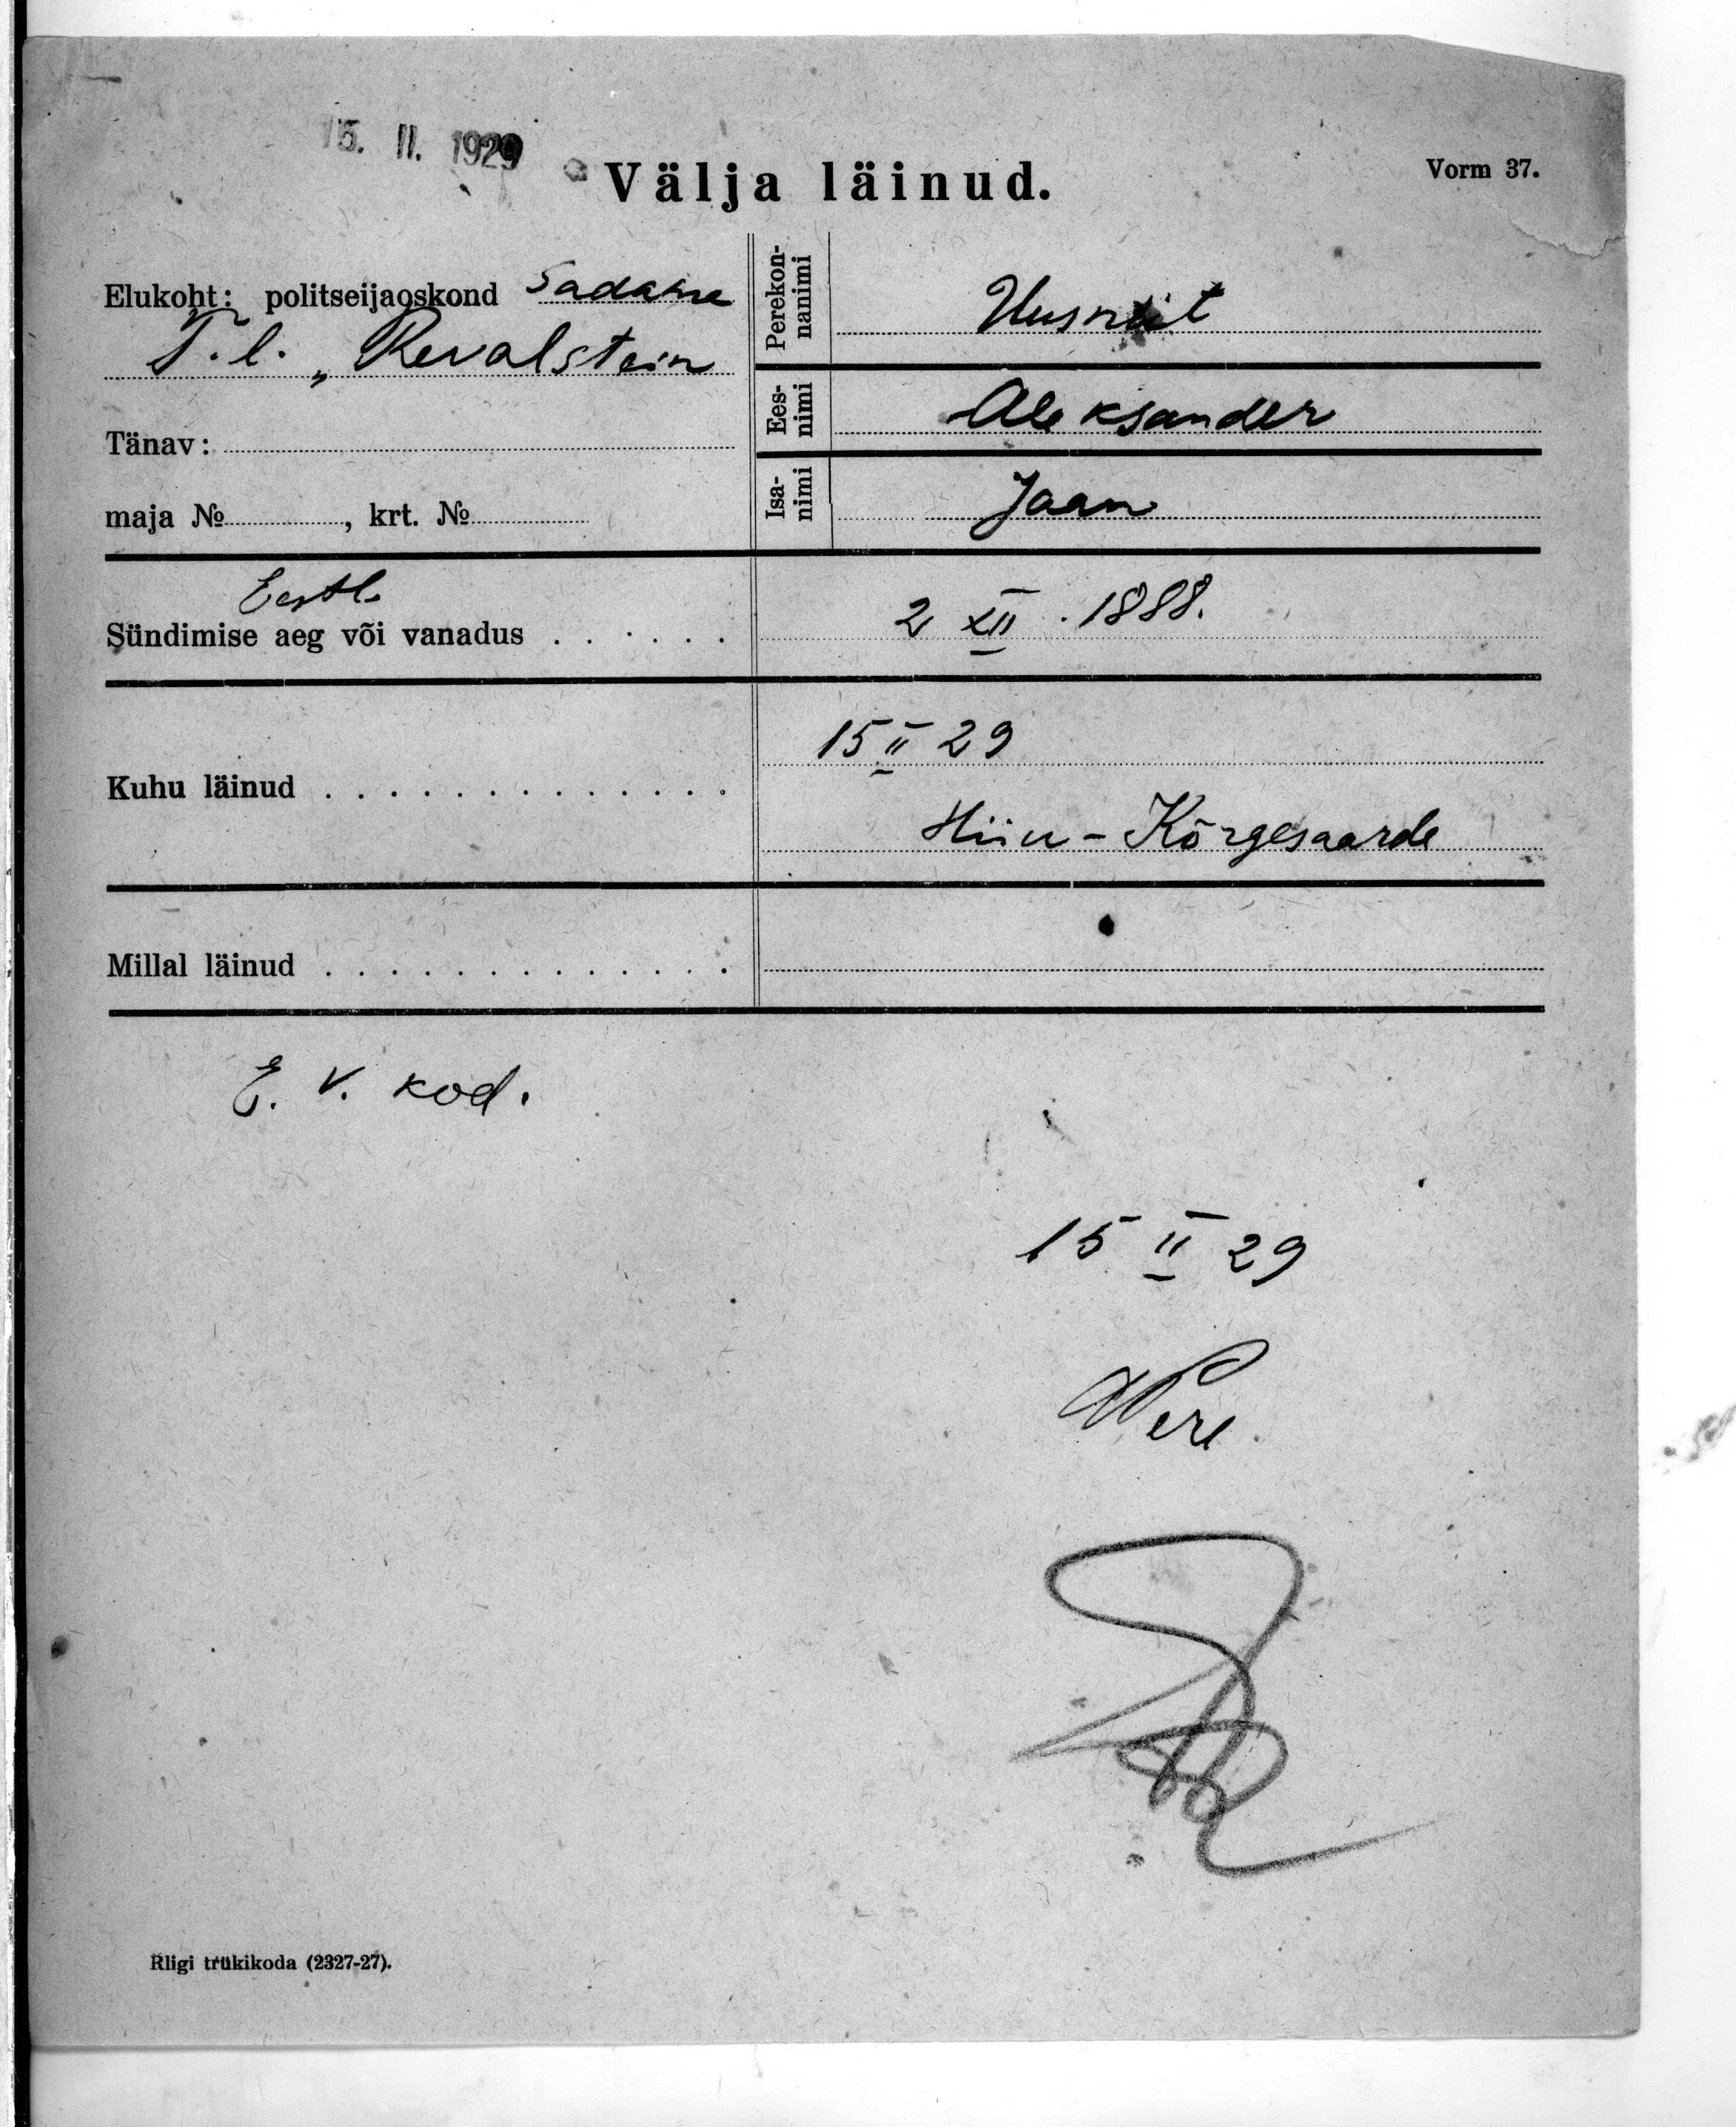 15. II. 1929
Välja läinud.
Vorm 37.
Elukoht: politseijaoskond Sadama
T.l. „Revalstein
Tänav:
maja №, krt. №
Perekon-
nanimi
Ees-
nimi
Aleksander
Isa-
nimi
Jaan
Eestl.
Sündimise aeg või vanadus . . . . . .
2 XII . 1888.
Kuhu läinud . . . . . . . . . . . . .
15 II 29
Hiiu-Kõrgesaarde
Millal läinud . . . . . . . . . . . . .
E. V. kod.
15 II 29
Riigi trükikoda (2327-27).